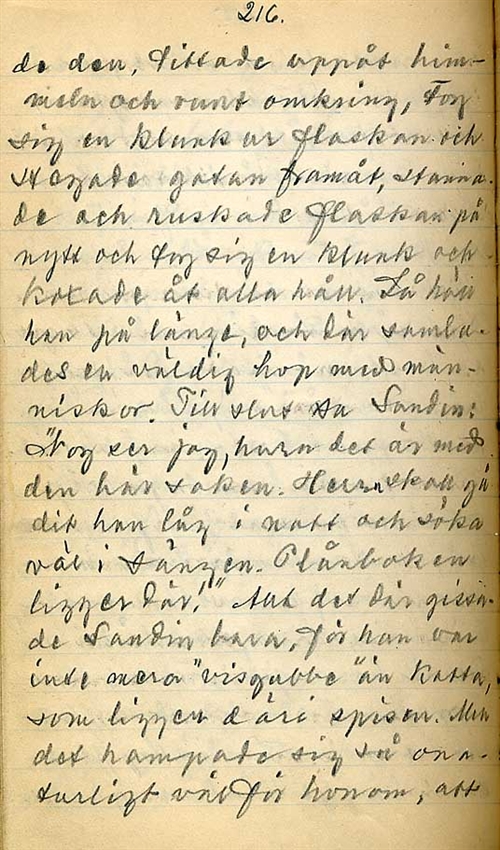 216.
de den, tittade uppåt him-
meln och runt omkring, tog
sig en klunk ur flaskan och
stegade gatan framåt, stanna-
de och ruskade flaskan på
nytt och tog sig en klunk och
koxade åt alla håll. Så höll
han på länge, och där samla-
des en väldig hop med män-
niskor. Till slut sa Sandin:
"Nog ser jag, hura det är med
den här saken. Herrn skall gå
dit han låg i natt och söka
väl i sängen. Plånboken
ligger där!" Allt det där gissa-
de Sandin bara, för han var
inte mera "visgubbe" än katta,
som ligger däri spisen. Men
det hampade sig så ona-
turligt väl för honom, att